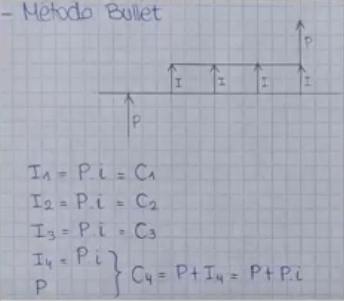 - Método Bullet
P
I I I I
P
I1 = P.i = C1
I2 = P.i = C2
I3 = P.i = C3
I4 = P.i
P
} C4 = P + I4 = P + P.i